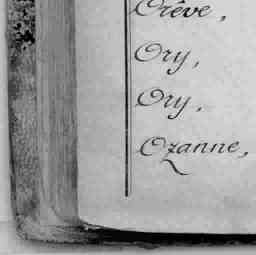 Orêve,
Ory,
Ory,
Ozanne,